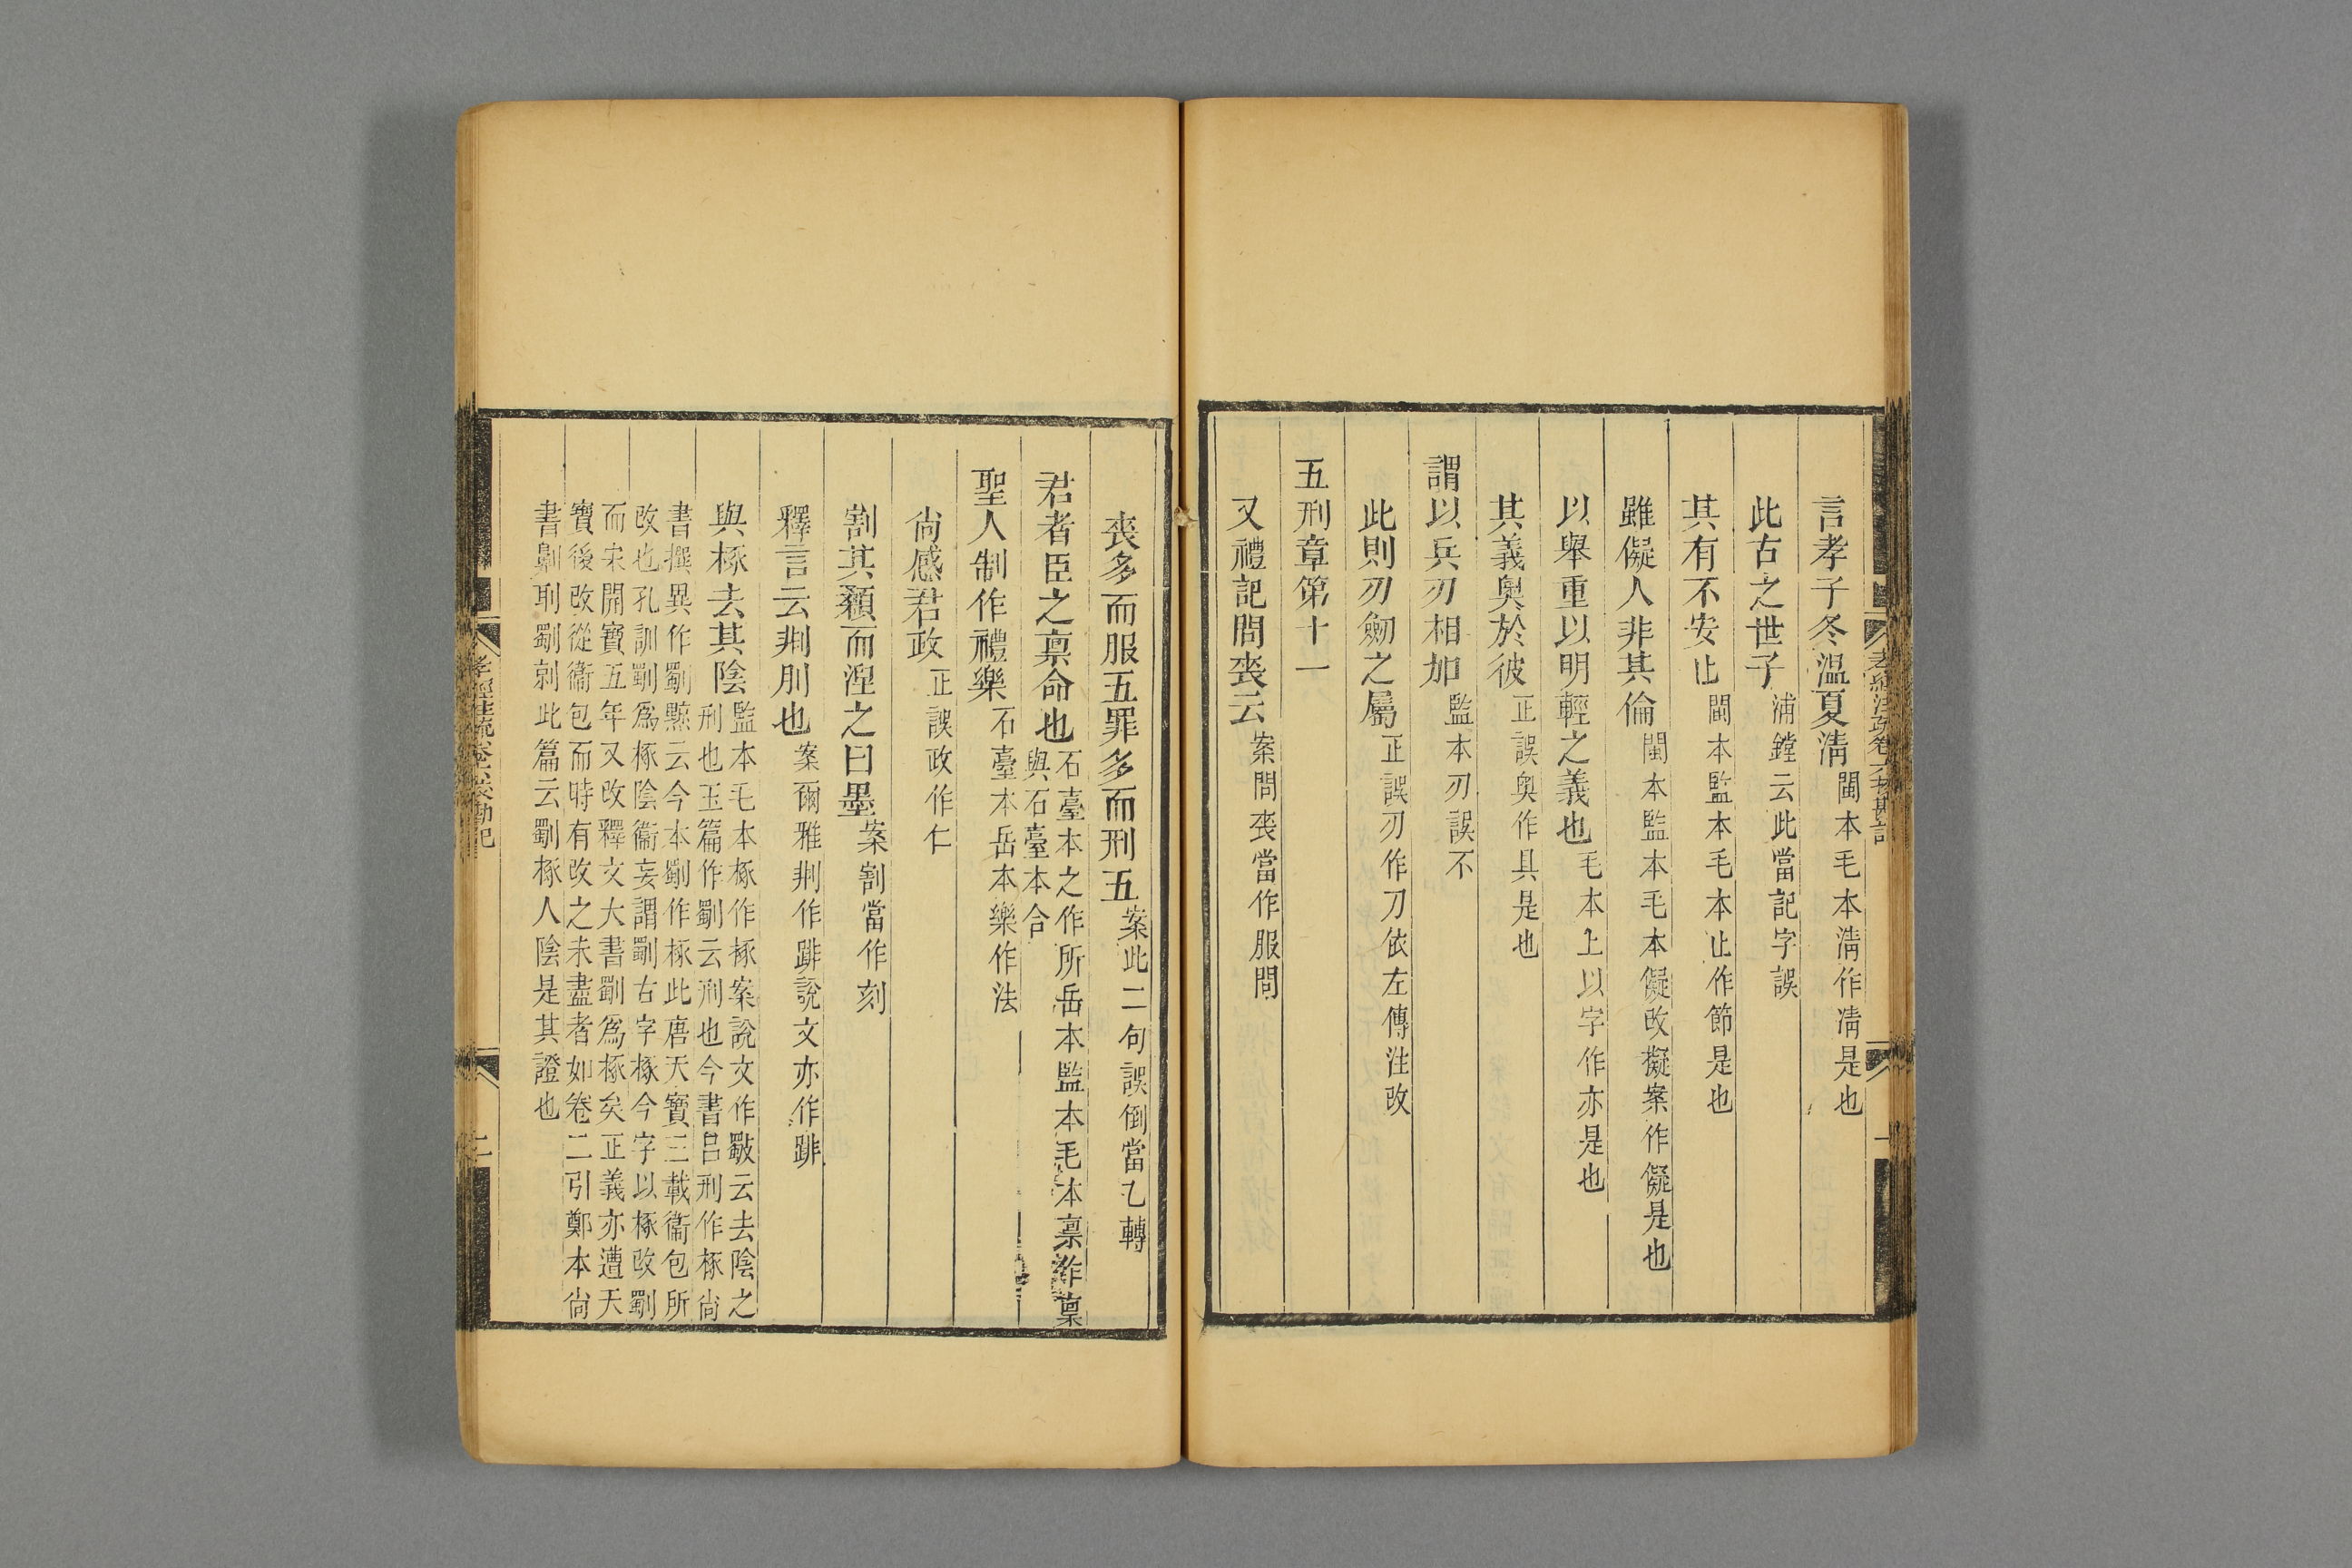 言孝子冬溫夏凊 閩本毛本凊作清是也
此古之世子 浦鏜云此當記字誤
其有不安止 閩本監本毛本止作節是也
雖儗人非其倫 閩本監本毛本儗改擬案作儗是也
以舉重以明輕之義也 毛本上以字作亦是也
其義奧於彼 正誤奧作具是也
謂以兵刃相加 監本刃誤不
此則刃劒之屬 正誤刃作刀依左傳注改
五刑章第十一
又禮記問喪云 案問喪當作服問
喪多而服五罪多而刑五 案此二句誤倒當乙轉
君者臣之稟命也 石臺本之作所岳本監本毛本稟作禀
與石臺本合
聖人制作禮樂 石臺本岳本樂作法
尚感君政 正誤政作仁
割其顙而涅之曰墨 案割當作刻
釋言云剕刖也 案爾雅剕作跳說文亦作跳
與椓去其陰 監本毛本椓作㧻案說文作斀云去陰之
刑也玉篇作劅云刑也今書呂刑作椓尚
書撰異作劅黥云今本劅作椓此唐天寶三載衞包所
改也孔訓劅爲椓陰衞妄謂劅古字椓今字以椓改劅
而宋開寶五年又改釋文大書劅爲椓矣正義亦遭天
寶後改從衞包而時有改之未盡者如卷二引鄭本尚
書劓刵劅剠此篇云劅椓人陰是其證也
孝經注疏卷六挍勘記